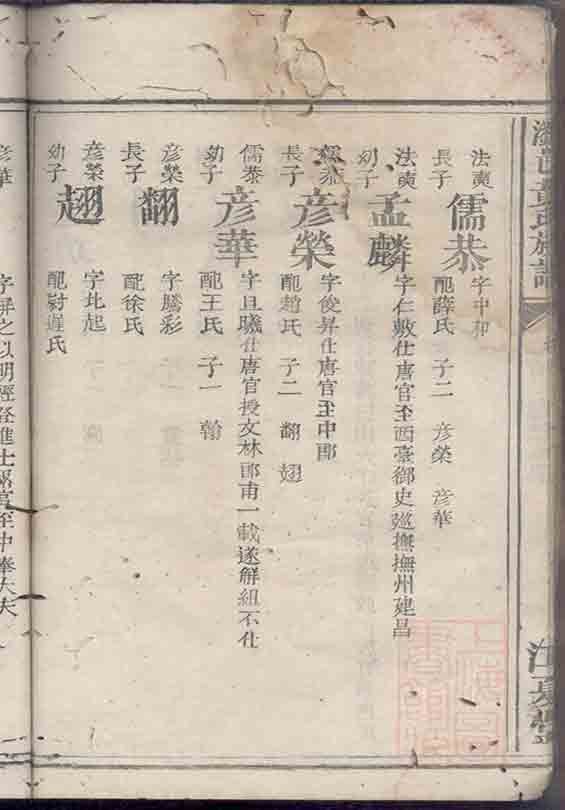 黃氏族譜
法奭
長子
儒恭
字中和
配薛氏 子二 彦榮 彦華
法奭
幼子
孟麟
字仁敷仕唐官至西臺御史廵撫撫州建昌
儒恭
長子
彦榮
字俊昇仕唐官至中郎
配趙氏 子二 翻 翅
儒恭
幼子
彦華
字且曦仕唐官授文林郎甫一載遂解組不仕
配王氏 子一 翰
彦榮
長子
翻
字騰彩
配徐氏
彦榮
幼子
翅
字北起
配尉遲氏
彦華
字屏之以明經登進士第官至中奉大夫